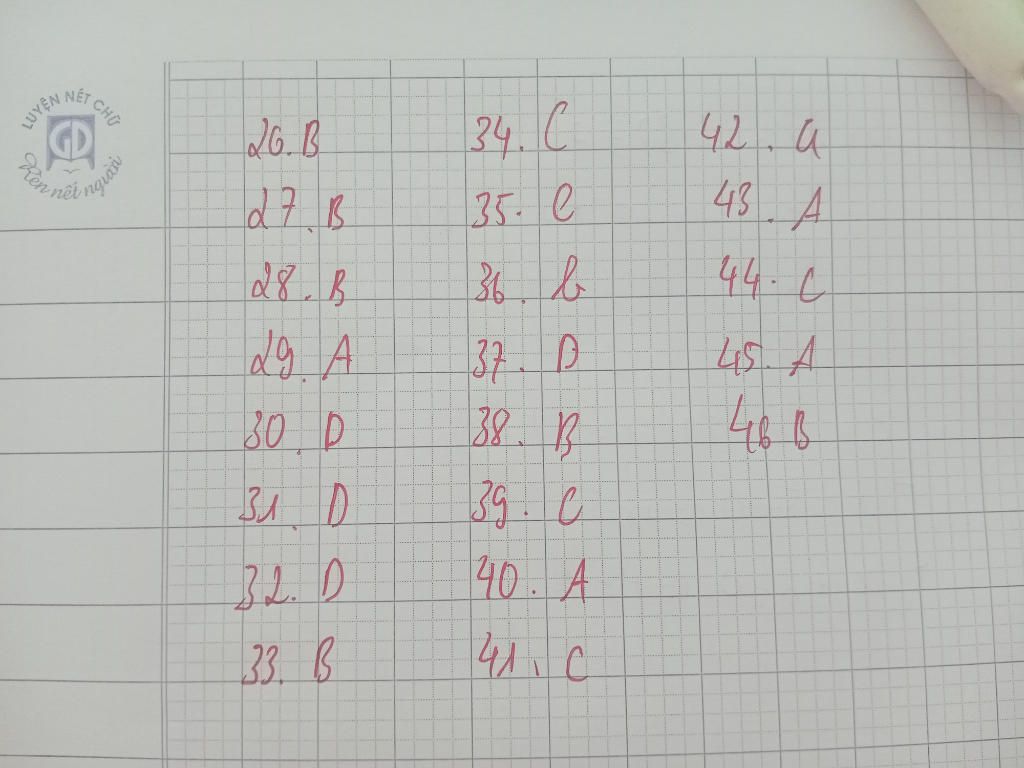 LUYỆN NÉT CHỮ
GD
Rèn nết người
26. B
27. B
28. B
29. A
30. D
31. D
32. D
33. B
34. C
35. C
36. b
37. D
38. B
39. C
40. A
41. C
42. a
43. A
44. C
45. A
46 B